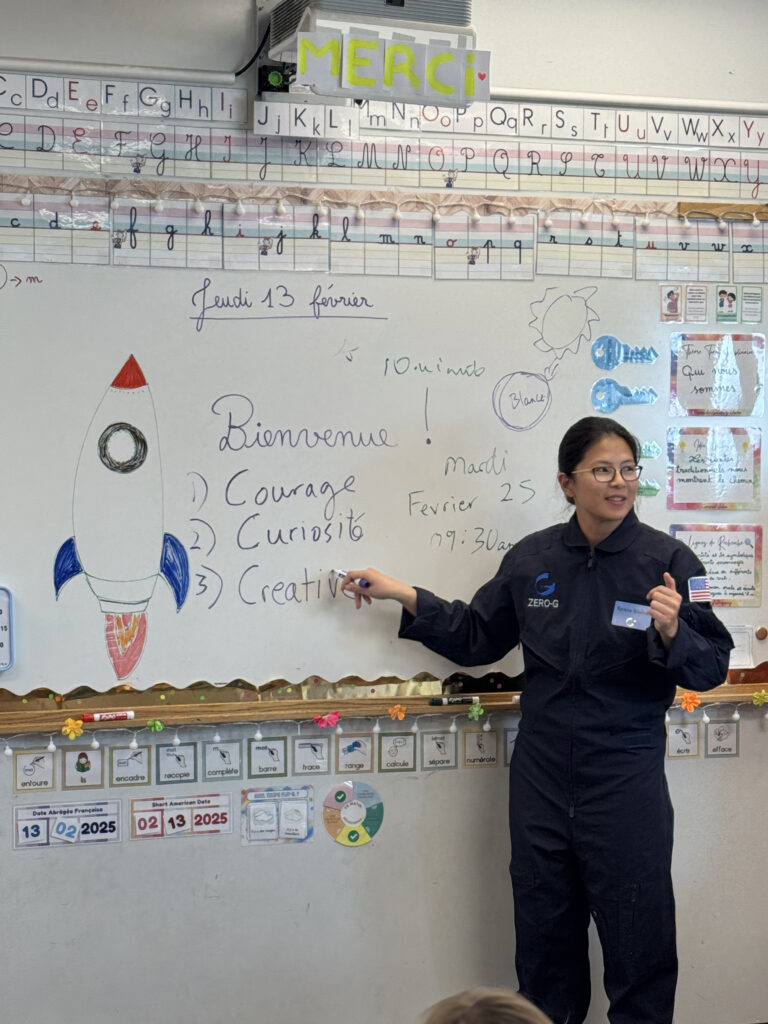 MERCi
Cc Dd Ee Ff Gg Hh Ii Jj Kk Ll Mm Nn Oo Pp Qq Rr Ss Tt Uu Vv Ww Xx Yy
C D E F G H I J K L M N O P Q R S T U V W X Y
c d e f g h i j k l m n o p q r s t u v w x
→ m
Jeudi 13 février
10 minutes
Blanche
Bienvenue !
1) Courage
2) Curiosité
3) Creativ
Mardi
Fevrier 25
Qui nous
sommes
Les contes
traditionnels nous
montrent le chemin
Lignes de Recherche
ZERO-G
entoure
encadre
recopie
complète
barre
trace
range
calcule
sépare
numérote
écris
efface
Date Abrégée Française
13 02 2025
Short American Date
02 13 2025